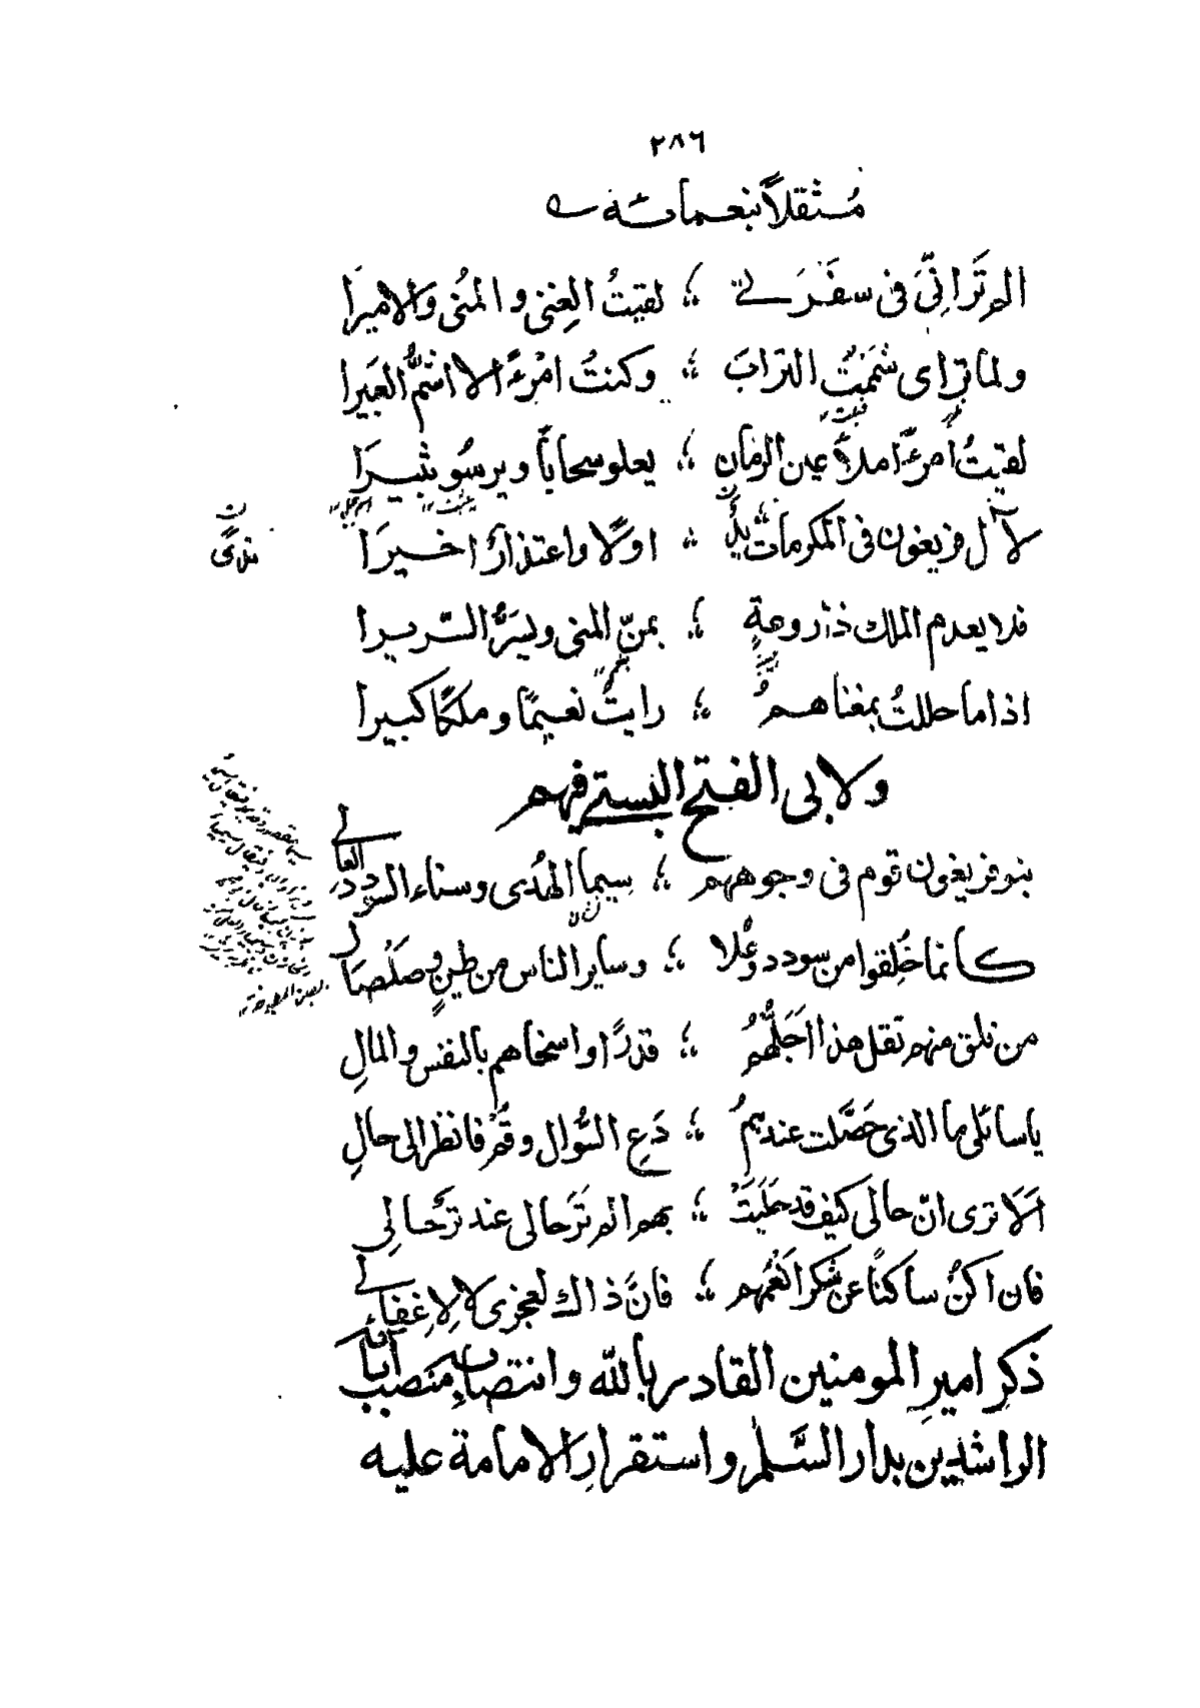 ٢٨٦
مُستثقلاً بنعمائه
الم تَرَ انِّىَ فى سفَرَتى ؛ لقيتُ الغِنى و المُنى والاميرا
ولما تراى شمَمتُ التراب ؛ وكنتُ امْرءً لا اشمُّ العَبيرا
لقيتُ امرءً املأ عين الزمان ؛ يعلو سحاباً ويرسُو ثبيرَا
لآل فريغون فى المكرمات يدٌ ؛ اولًا واعتذارٌ اخيرَا
فلا يعدم الملك ذاروعةٍ ؛ بمنّ المنى ويسَرُّ السّريرا
اذا ما حللتُ بمغناهمُ ؛ رايتُ نعيمًا وملكًا كبيرا
ولابى الفتح البستى فيهم
بنو فريغون قوم فى وجوههم ؛ سيما الهُدى وسناء السودد العالى
كانما خُلِقوا من سودد وعُلا ؛ وساير الناس من طينٍ وصلصَالِ
من تلق منهم تقل هذا اجَلُّهمُ ؛ قدرًا واسخاهم بالنفس والمالِ
يا سائلى ما الذى حَصَّلت عندهمُ ؛ دَعِ السُّوال وقُم فانظر الى حالِ
اَلَا ترى انّ حالى كيف قد حَلِيَتْ ؛ بهم الم تَرَ حالى عند تَرحَالِى
فان اكنْ ساكتًا عن شكر انعُمِهم ؛ فانَّ ذاك لعجزى لا لِاِغفالى
ذكر اميرِ المومنين القادر بالله وانتصابه منصب آبائه
الراشدين بدار السَّلم واستقرارِ الامامة عليه